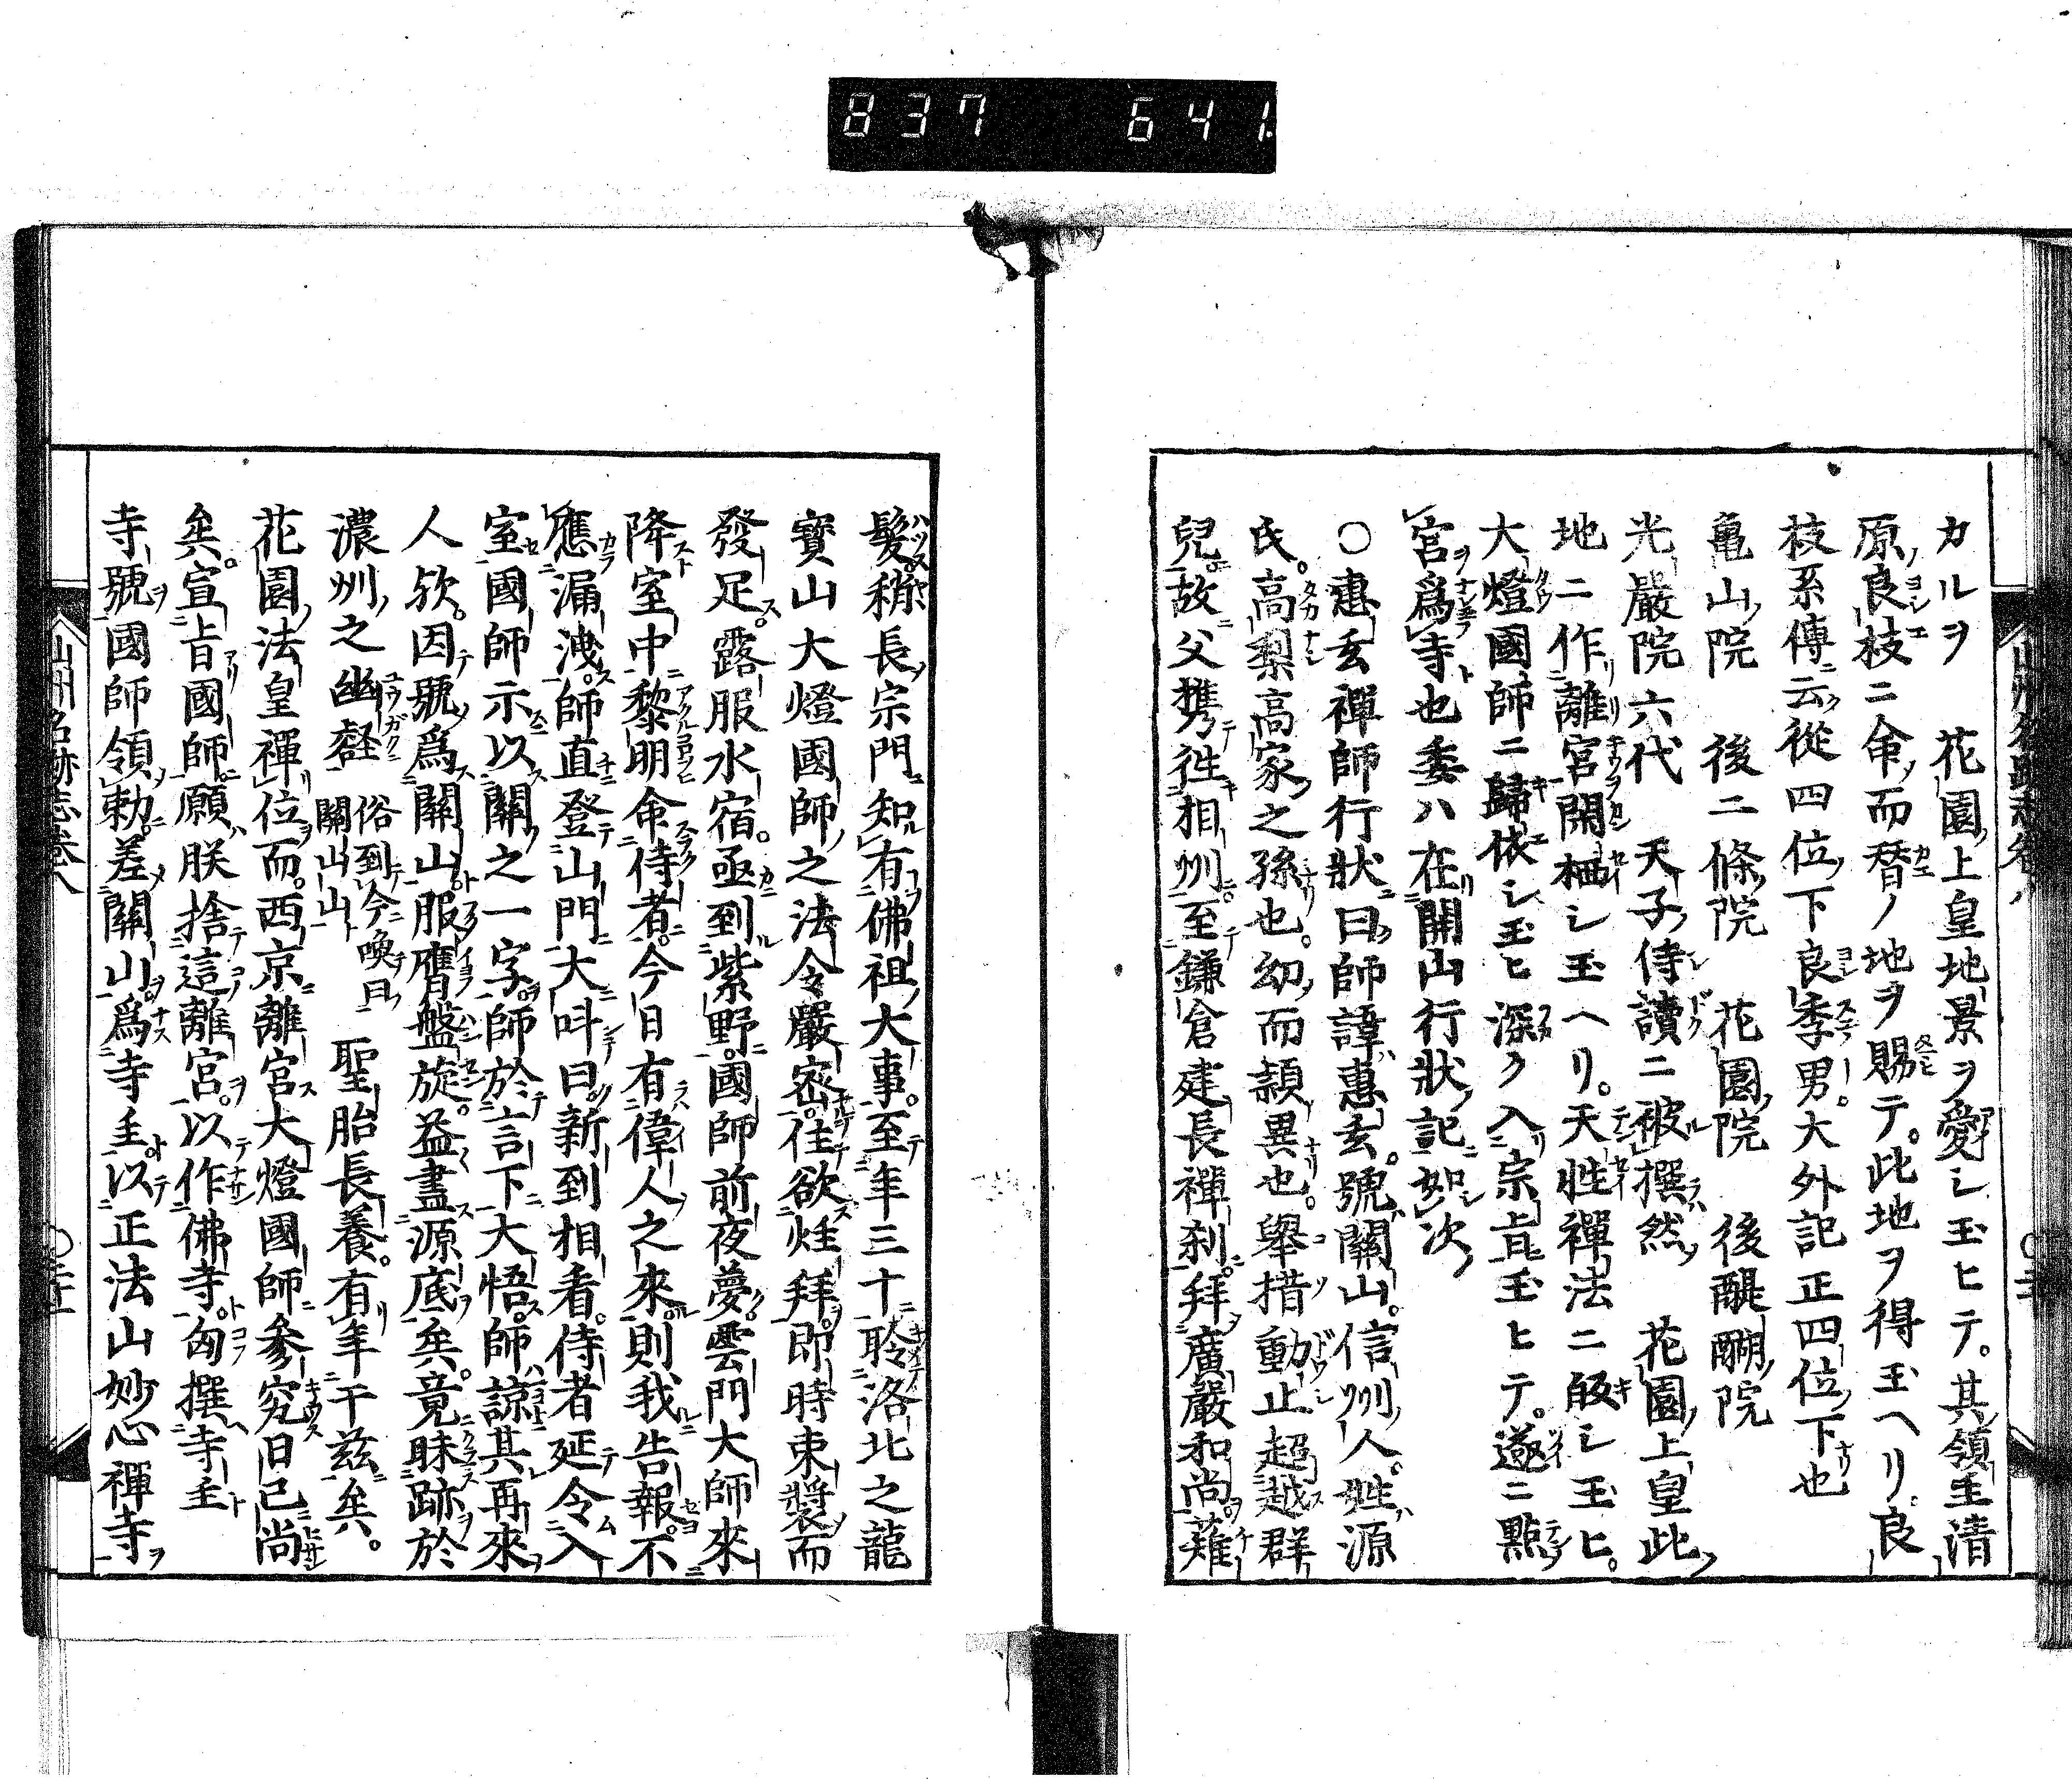 837 641
カルヲ 花園上皇地景ヲ愛シ玉ヒテ。其領主清
原良枝ニ命而替ノ地ヲ賜テ。此地ヲ得玉ヘリ。良
枝系傳云從四位下良季男。大外記正四位下也
亀山院 後二條院 花園院 後醍醐院
光嚴院六代 天子侍讀ニ被撰然 花園上皇此
地ニ作離宮開栖シ玉ヘリ。天性禪法ニ皈シ玉ヒ。
大燈國師ニ歸依シ玉ヒ深ク入宗旨玉ヒテ。遂ニ點
宮爲寺也委ハ在開山行狀記如次
○惠玄禪師行狀曰師諱惠玄。號關山。信州人。姓源
氏。高梨高家之孫也。幼而頴異也。舉措動止超越群
兒。故父携徃相州至鎌倉建長禪刹。拜廣嚴和尚。薙
髮。稍長宗門知有佛祖大事。至年三十聆洛北之龍
寶山大燈國師之法令嚴密。徃欲炷拜。即時束裝而
發足。露服水宿。亟到紫野。國師前夜夢。雲門大師來
降室中。黎明命侍者。今日有偉人之來。則我告報。不
應漏洩。師直登山門。大呌曰。新到相看。侍者延令入
室。國師示以關之一字。師於言下大悟。師諒其再來
人欤。因號爲關山服膺盤旋。益盡源底矣。竟昧跡於
濃州之幽壑 俗到今喚曰關山山 聖胎長養。有年于茲矣。
花園法皇禪位而。西京離宮大燈國師參究日已尚
矣。宣旨國師。願朕捨這離宮。以作佛寺。匃撰寺主
寺號國師領勅。差關山爲寺主。以正法山妙心禪寺